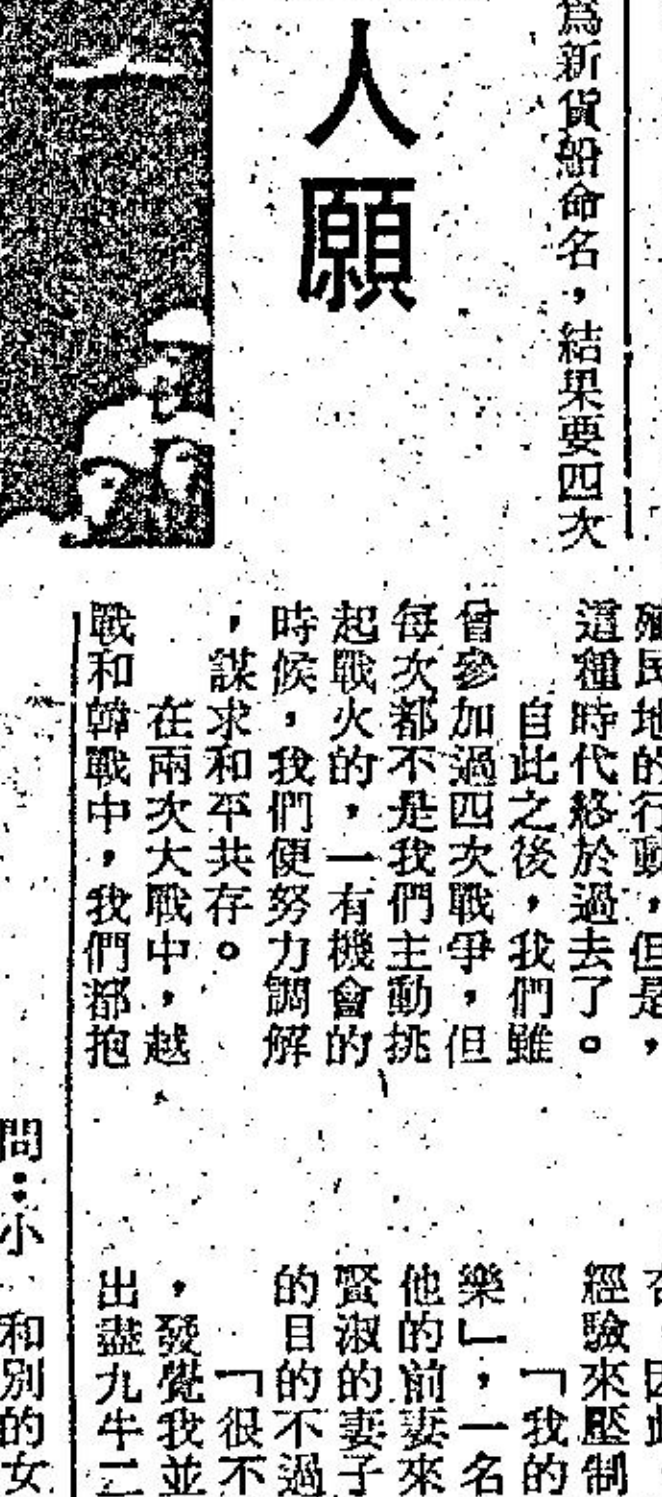 為新貨船命名，結果要四次
人願
殖民地的行動，但是，
這種時代終於過去了。
自此之後，我們雖
曾參加過四次戰爭，但
每次都不是我們主動挑
起戰火的，一有機會的
時候，我們便努力調解
，謀求和平共存。
在兩次大戰中，越
戰和韓戰中，我們都抱
經驗來壓制
「我的
樂」，一名
他的前妻來
賢淑的妻子
的目的不過
「很不
，發覺我並
出盡九牛二
問：小
和別的女